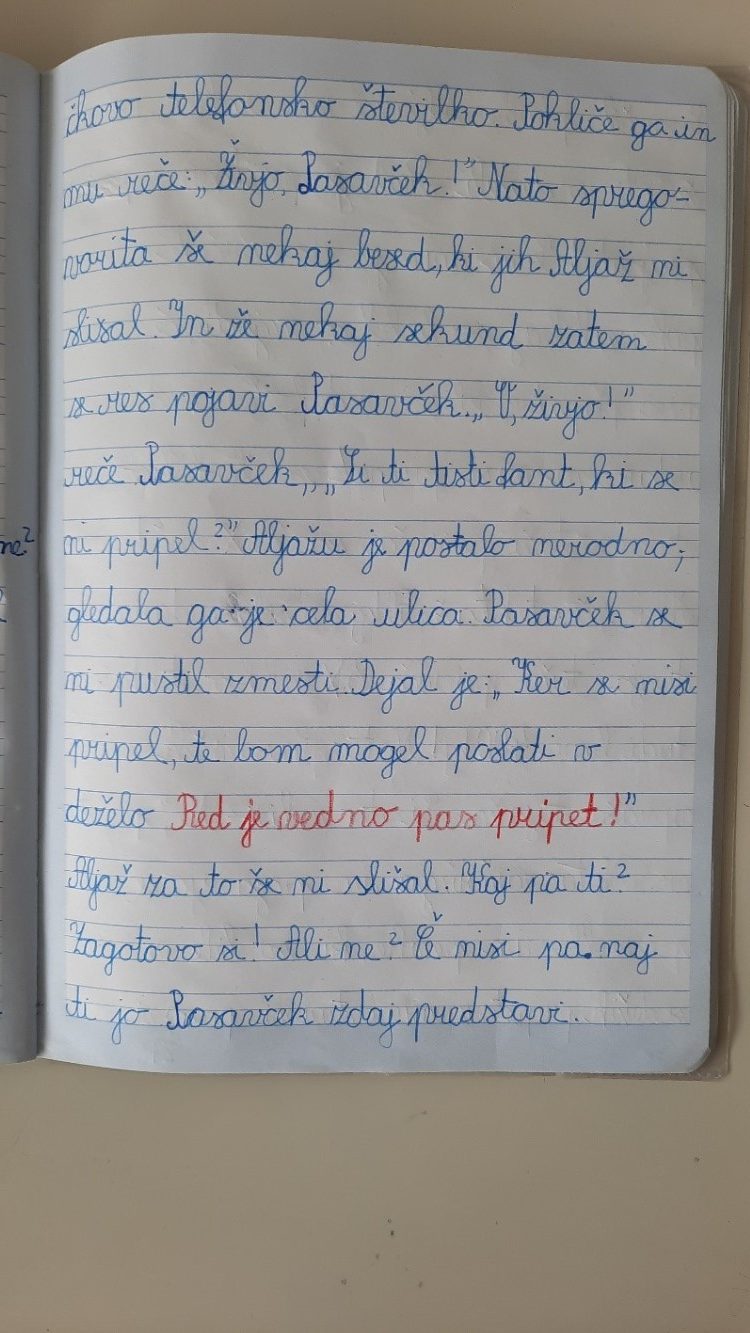 čkovo telefonsko številko. Pokliče ga in
mu reče: „Živjo, Pasavček!” Nato sprego-
vorita še nekaj besed, ki jih Aljaž ni
slišal. In že nekaj sekund zatem
se res pojavi Pasavček. „O, živjo!”
reče Pasavček, „Si ti tisti fant, ki se
ni pripel?” Aljažu je postalo nerodno;
gledala ga je cela ulica. Pasavček se
ni pustil zmesti. Dejal je: „Ker se nisi
pripel, te bom mogel poslati v
deželo Red je vedno pas pripet!”
Aljaž za to še ni slišal. Kaj pa ti?
Zagotovo si! Ali ne? Če nisi pa naj
ti jo Pasavček zdaj predstavi.
ne?